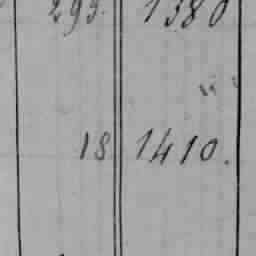 293. 1380
18 1410.